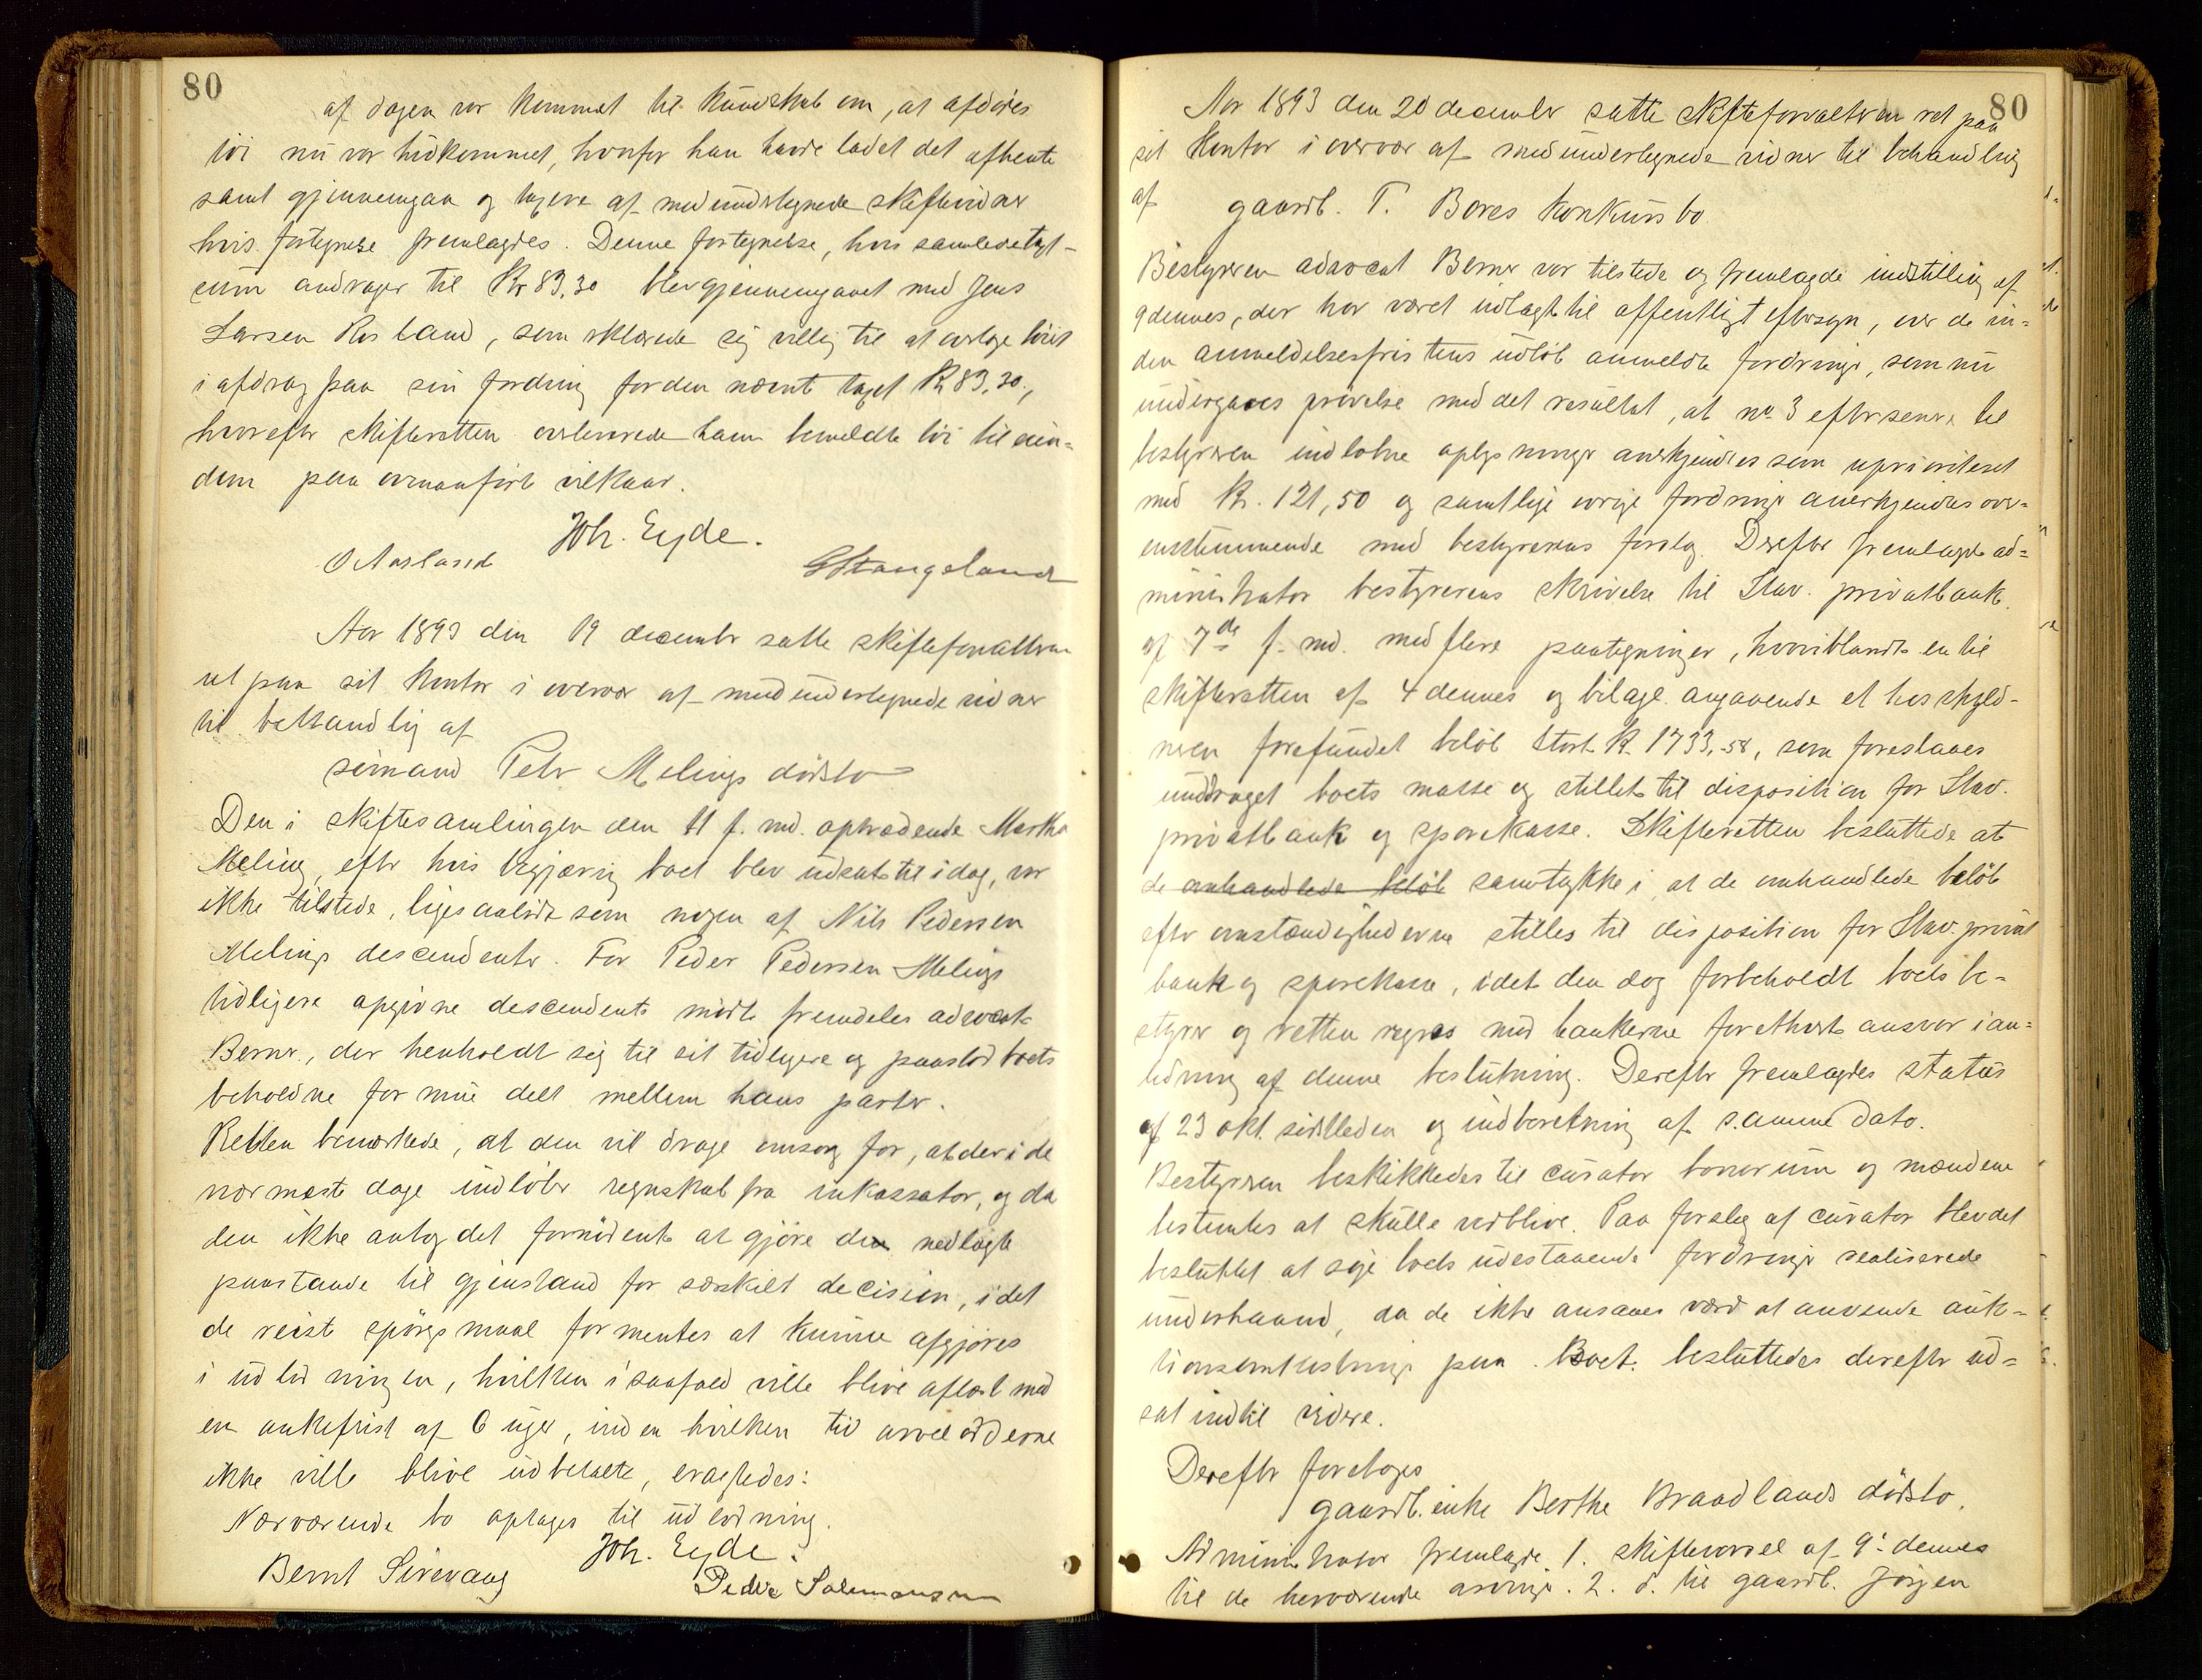 80
af dagen var kommet til kundskab om, at afdødes
tøi nu var hidkommet, hvorfor han havde ladet det afhente
samt gjennemgaa og taxere af medundertegnede skiftevidner
hvis fortegnelse fremlagdes. Denne fortegnelse, hvis samlede taxt-
cum andrager til Kr 89,30 blev gjennemgaaet med Jens
Larsen Rosland, som erklærede sig villig til at overtage tøiet
i afdrag paa sin fordring for den nævnte taxt Kr 89,30,
hvorefter skifteretten overleverede ham bemeldte tøi til eien-
dom paa ovenanførte vilkaar.
Joh. Eyde.
O Aasland
G Stangeland
Aar 1893 den 19 december satte skifteforvalteren
ret paa sit kontor i overvær af medundertegnede vidner
til behandling af
sømand Peter Melings dødsbo
Den i skiftesamlingen den 11 f. md. optrædende Martha
Meling, efter hvis begjæring boet blev udsat til idag, var
ikke tilstede, ligesaalidt som nogen af Nils Pedersen
Melings descendenter. For Peder Pedersen Melings
tidligere opgivne descendenter mødte fremdeles advocat
Berner, der henholdt sig til sit tidligere og paastod boets
beholdne formue delt mellem hans parter.
Retten bemærkede, at den vil drage omsorg for, at der i de
nærmeste dage indløber regnskab fra inkassator, og da
den ikke antog det fornødent at gjøre den nedlagte
paastande til gjenstand for særskilt decision, idet
de reist spørgsmaal formentes at kunne afgjøres
i udlodningen, hvilken i saafald ville blive aflæst med
en ankefrist af 6 uger, inden hvilken tid arvelodderne
ikke ville blive udbetalte, eragtedes:
Nærværende bo optages til udlodning.
Joh. Eyde.
Bernt Sirevaag
Peder Salomonsen
80
Aar 1893 den 20 december satte skifteforvalteren ret paa
sit kontor i overvær af medundertegnede vidner til behandling
af gaardb. T. Bores konkursbo.
Bestyreren advocat Berner var tilstede og fremlagde indstilling af
9 dennes, der har været udlagt til offentligt eftersyn, over de in=
den anmeldelsesfristens udløb anmeldte fordringer, som nu
undergaves prøvelse med det resultat, at no 3 efter senere til
bestyreren indløbne oplysninger anerkjendtes som uprioriteret
med Kr. 121,50 og samtlige øvrige fordringer anerkjendtes over=
ensstemmende med bestyrerens forslag. Derefter fremlagde ad=
ministrator bestyrerens skrivelse til Stav. privatbank
af 7de f. md. med flere paategninger, hvoriblandt en til
skifteretten af 4 dennes og bilage angaaende et hos skyld-
neren forefundet beløb stort Kr. 1733,58, som foreslaaes
unddraget boets masse og stillet til disposition for Stav.
privatbank og sparekasse. Skifteretten besluttede at
de omhandlede beløb samtykke i, at de omhandlede beløb
efter omstændighederne stilles til disposition for Stav. privat
bank og sparekasse, idet den dog forbeholdt boets be=
styrer og retten regres mod bankerne for ethvert ansvar i an=
ledning af denne beslutning. Derefter fremlagdes status
af 23 okt. sidstleden og indberetning af samme dato.
Bestyreren beskikkedes til curator bonorum og mændene
bestemtes at skulle vedblive. Paa forslag af curator blev det
besluttet at søge boets udestaaende fordringer realiserede
underhaand, da de ikke ansaaes værd at anvende auk=
tionsomkostninger paa. Boet besluttedes derefter ud=
sat indtil videre.
Derefter foretoges
gaardb. enke Berthe Braadlands dødsbo.
Administrator fremlagde 1. skiftevarsel af 9. dennes
til de herværende arvinger. 2. d. til gaardb. Jørgen